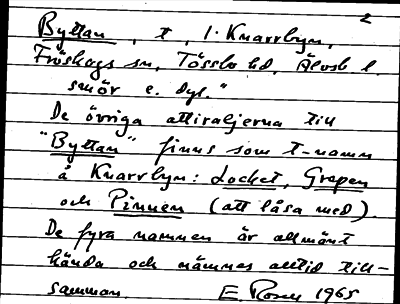 2
Byttan, t, 1. Knarrbyn,
Fröskogs sn, Tössbo hd, Älvsb l.
smör e. dyl."
De övriga attiraljerna till
"Byttan" finns som t-namn
å Knarrbyn: Locket, Grepen
och Pinnen (att låsa med).
De fyra namnen är allmänt
kända och nämnes alltid till-
samman. E. Rosen 1965